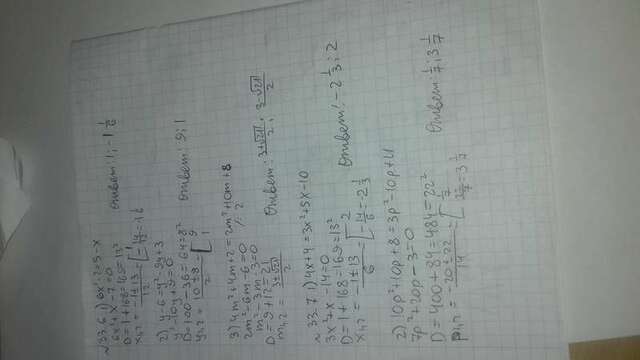 №33.6 1) 6x²-2=5-x
6x²+x-7=0
D=1+168=169=13²
x₁,₂ = (-1±13)/12 = [1; -14/12=-1 1/6 Ответ: 1; -1 1/6
2) y-6=y²-9y+3
y²-10y+9=0
D=100-36=64=8²
y₁,₂ = (10±8)/2 = [9; 1 Ответ: 9; 1
3) 4m²+4m+2=2m²+10m+8
2m²-6m-6=0 /:2
m²-3m-3=0
D=9+12=21
m₁,₂ = (3±√21)/2 Ответ: (3+√21)/2; (3-√21)/2
№33.7 1) 4x+4=3x²+5x-10
3x²+x-14=0
D=1+168=169=13²
x₁,₂ = (-1±13)/6 = [2; -14/6=-2 1/3 Ответ: -2 1/3; 2
2) 10p²+10p+8=3p²-10p+11
7p²+20p-3=0
D=400+84=484=22²
p₁,₂ = (-20±22)/14 = [1/7; 3 1/7 Ответ: 1/7; 3 1/7